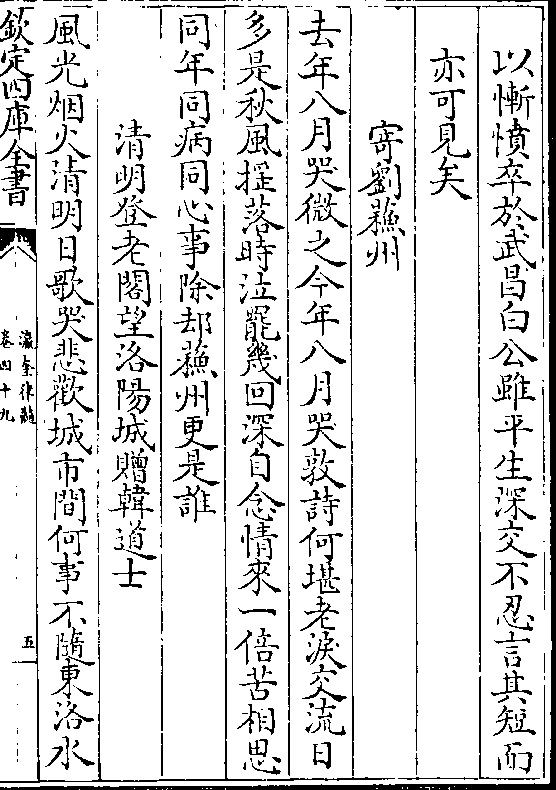 以慚憤卒於武昌白公雖平生深交不忍言其短而
亦可見矣
寄劉蘇州
去年八月哭微之今年八月哭敦詩何堪老淚交流日
多是秋風揺落時泣罷幾回深自念情來一倍苦相思
同年同病同心事除却蘇州更是誰
清明登老閣望洛陽城贈韓道士
風光烟火清明日歌哭悲歡城市間何事不隨東洛水
欽定四庫全書
瀛奎律髓
卷四十九
五